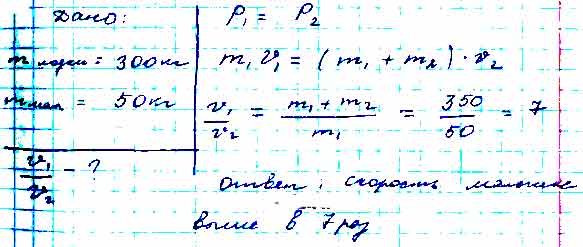 Дано:
m лодки = 300кг
m мал = 50кг
v₁/v₂ - ?
p₁ = p₂
m₁v₁ = (m₁ + m₂) · v₂
v₁/v₂ = (m₁ + m₂)/m₁ = 350/50 = 7
ответ: скорость мальчика
выше в 7 раз